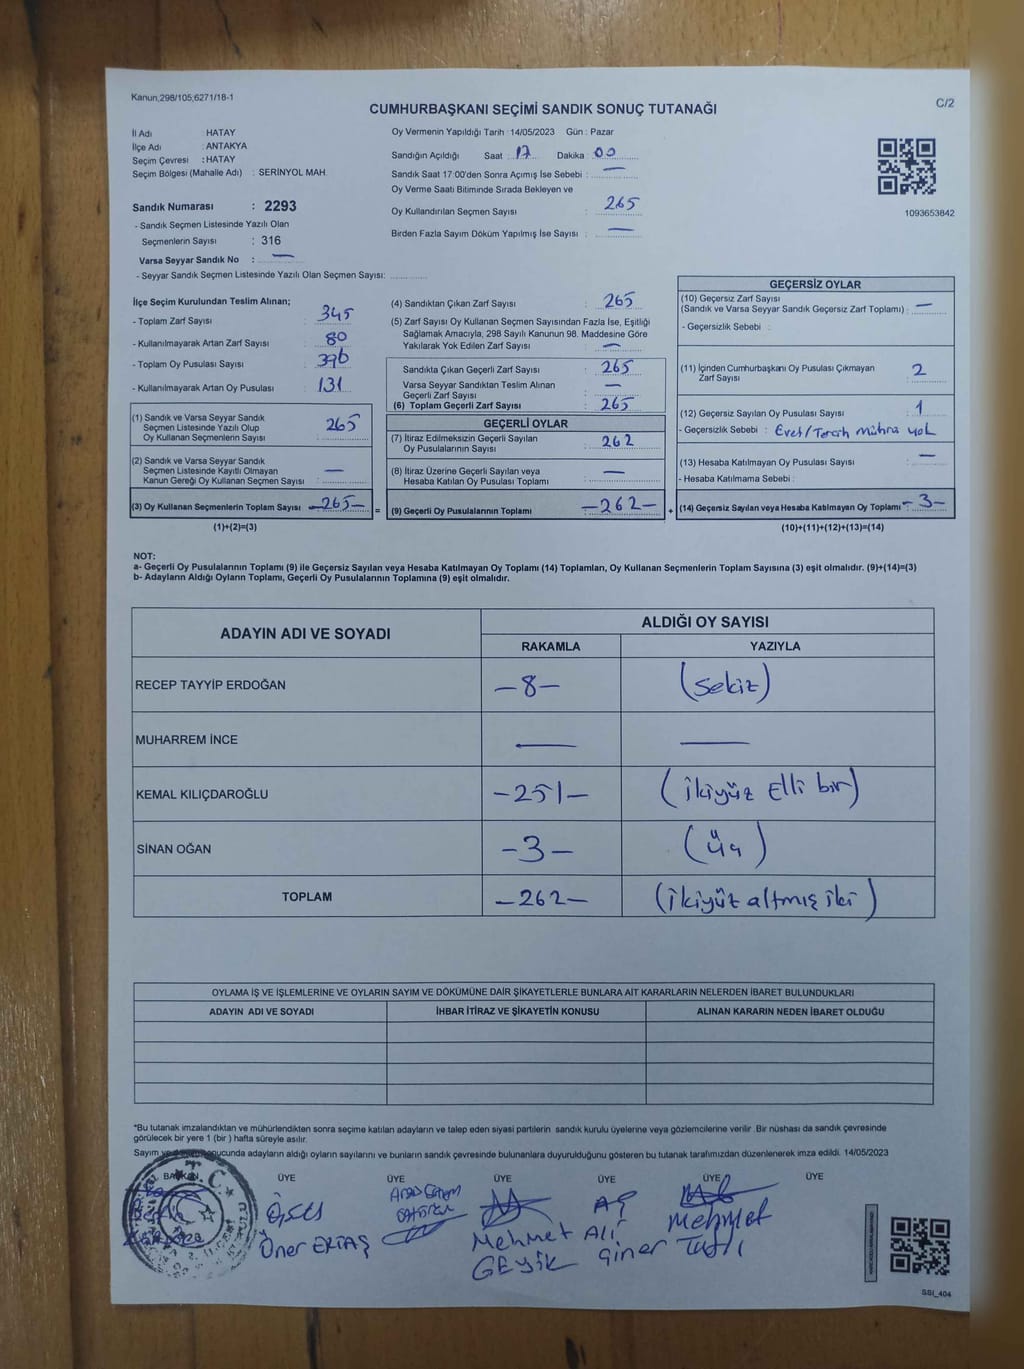 Kanun,298/105;6271/18-1
C/2
CUMHURBAŞKANI SEÇİMİ SANDIK SONUÇ TUTANAĞI
İl Adı HATAY
İlçe Adı : ANTAKYA
Seçim Çevresi : HATAY
Seçim Bölgesi (Mahalle Adı) : SERİNYOL MAH.
Sandık Numarası : 2293
- Sandık Seçmen Listesinde Yazılı Olan
Seçmenlerin Sayısı : 316
Varsa Seyyar Sandık No : —
- Seyyar Sandık Seçmen Listesinde Yazılı Olan Seçmen Sayısı: ............
Oy Vermenin Yapıldığı Tarih : 14/05/2023 Gün : Pazar
Sandığın Açıldığı Saat : 17 Dakika : 00
Sandık Saat 17:00'den Sonra Açımış İse Sebebi : —
Oy Verme Saati Bitiminde Sırada Bekleyen ve
Oy Kullandırılan Seçmen Sayısı : 265
Birden Fazla Sayım Döküm Yapılmış İse Sayısı : —
1093653842
İlçe Seçim Kurulundan Teslim Alınan;
- Toplam Zarf Sayısı : 345
- Kullanılmayarak Artan Zarf Sayısı : 80
- Toplam Oy Pusulası Sayısı : 396
- Kullanılmayarak Artan Oy Pusulası : 131
(1) Sandık ve Varsa Seyyar Sandık
Seçmen Listesinde Yazılı Olup
Oy Kullanan Seçmenlerin Sayısı : 265
(2) Sandık ve Varsa Seyyar Sandık
Seçmen Listesinde Kayıtlı Olmayan
Kanun Gereği Oy Kullanan Seçmen Sayısı : —
(3) Oy Kullanan Seçmenlerin Toplam Sayısı —265— =
(1)+(2)=(3)
(4) Sandıktan Çıkan Zarf Sayısı : 265
(5) Zarf Sayısı Oy Kullanan Seçmen Sayısından Fazla İse, Eşitliği
Sağlamak Amacıyla, 298 Sayılı Kanunun 98. Maddesine Göre
Yakılarak Yok Edilen Zarf Sayısı : —
Sandıkta Çıkan Geçerli Zarf Sayısı : 265
Varsa Seyyar Sandıktan Teslim Alınan
Geçerli Zarf Sayısı : —
(6) Toplam Geçerli Zarf Sayısı : 265
GEÇERLİ OYLAR
(7) İtiraz Edilmeksizin Geçerli Sayılan
Oy Pusulalarının Sayısı : 262
(8) İtiraz Üzerine Geçerli Sayılan veya
Hesaba Katılan Oy Pusulası Toplamı : —
(9) Geçerli Oy Pusulalarının Toplamı —262— +
GEÇERSİZ OYLAR
(10) Geçersiz Zarf Sayısı
(Sandık ve Varsa Seyyar Sandık Geçersiz Zarf Toplamı) : —
- Geçersizlik Sebebi :
(11) İçinden Cumhurbaşkanı Oy Pusulası Çıkmayan
Zarf Sayısı : 2
(12) Geçersiz Sayılan Oy Pusulası Sayısı : 1
- Geçersizlik Sebebi : Evet/Tercih Mührü yok
(13) Hesaba Katılmayan Oy Pusulası Sayısı : —
- Hesaba Katılmama Sebebi :
(14) Geçersiz Sayılan veya Hesaba Katılmayan Oy Toplamı : —3—
(10)+(11)+(12)+(13)=(14)
NOT:
a- Geçerli Oy Pusulalarının Toplamı (9) ile Geçersiz Sayılan veya Hesaba Katılmayan Oy Toplamı (14) Toplamları, Oy Kullanan Seçmenlerin Toplam Sayısına (3) eşit olmalıdır. (9)+(14)=(3)
b- Adayların Aldığı Oyların Toplamı, Geçerli Oy Pusulalarının Toplamına (9) eşit olmalıdır.
ADAYIN ADI VE SOYADI ALDIĞI OY SAYISI
RAKAMLA YAZIYLA
RECEP TAYYİP ERDOĞAN —8— (sekiz)
MUHARREM İNCE — —
KEMAL KILIÇDAROĞLU —251— (ikiyüz elli bir)
SİNAN OĞAN —3— (üç)
TOPLAM —262— (ikiyüz altmış iki)
OYLAMA İŞ VE İŞLEMLERİNE VE OYLARIN SAYIM VE DÖKÜMÜNE DAİR ŞİKAYETLERLE BUNLARA AİT KARARLARIN NELERDEN İBARET BULUNDUKLARI
ADAYIN ADI VE SOYADI İHBAR İTİRAZ VE ŞİKAYETİN KONUSU ALINAN KARARIN NEDEN İBARET OLDUĞU
*Bu tutanak imzalandıktan ve mühürlendikten sonra seçime katılan adayların ve talep eden siyasi partilerin sandık kurulu üyelerine veya gözlemcilerine verilir. Bir nüshası da sandık çevresinde
görülecek bir yere 1 (bir) hafta süreyle asılır.
Sayım ve sonucunda adayların aldığı oyların sayılarını ve bunların sandık çevresinde bulunanlara duyurulduğunu gösteren bu tutanak tarafımızdan düzenlenerek imza edildi. 14/05/2023
BAŞKAN ÜYE ÜYE ÜYE ÜYE ÜYE ÜYE
T.C.
Öner
Mehmet Ali
GEYİK
Mehmet
SSI_404